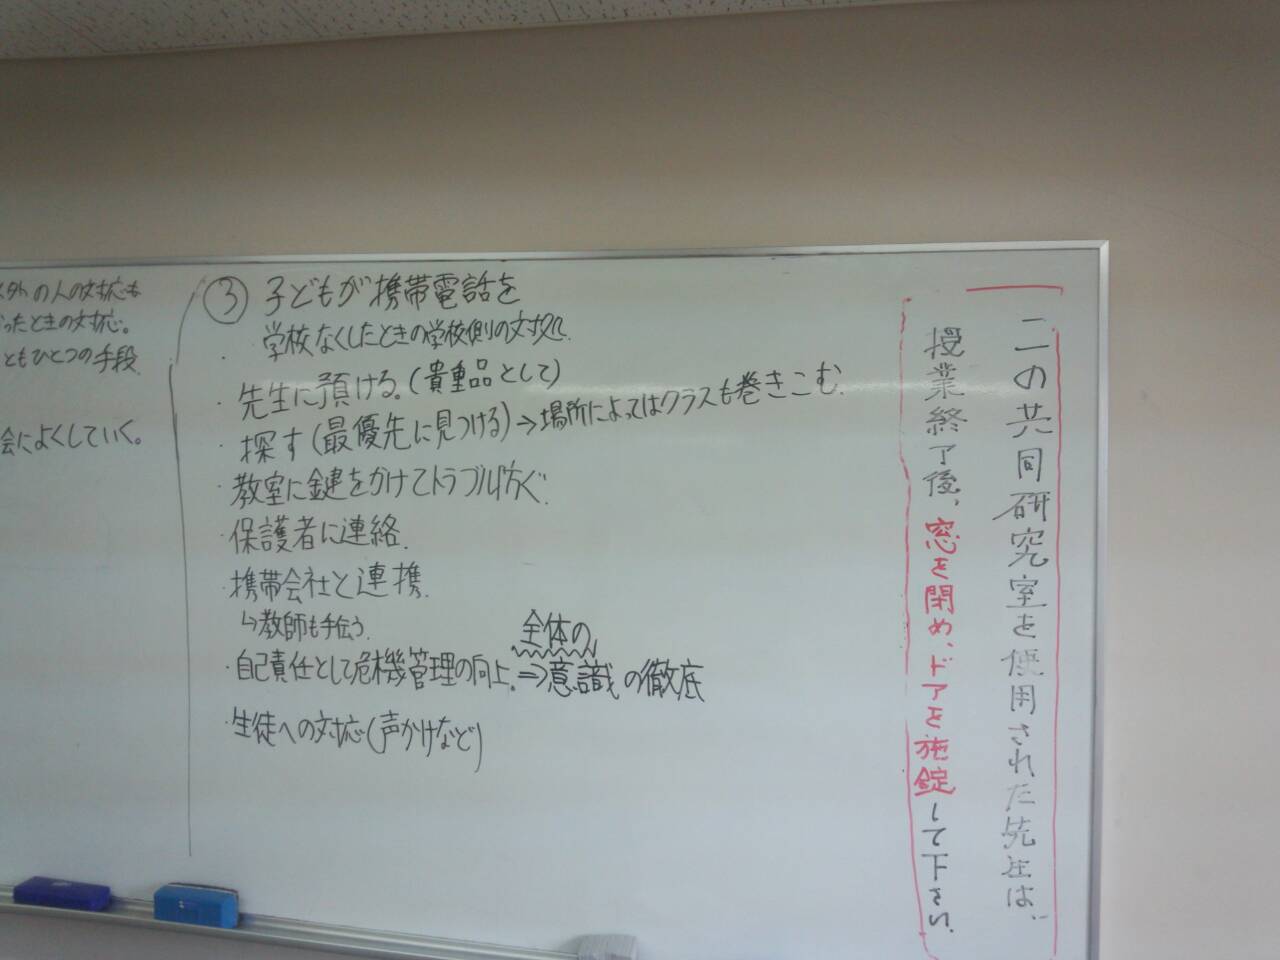 外の人の対応も
ったときの対応。
ともひとつの手段
会によくしていく。
③ 子どもが携帯電話を
学校なくしたときの学校側の対処
・先生に預ける。(貴重品として)
・探す(最優先に見つける)→場所によってはクラスも巻きこむ.
・教室に鍵をかけてトラブル防ぐ.
・保護者に連絡.
・携帯会社と連携.
↳教師も手伝う.
全体の
・自己責任として危機管理の向上.⇒意識の徹底
・生徒への対応(声かけなど)
この共同研究室を使用された先生は、
授業終了後、窓を閉め、ドアを施錠して下さい.